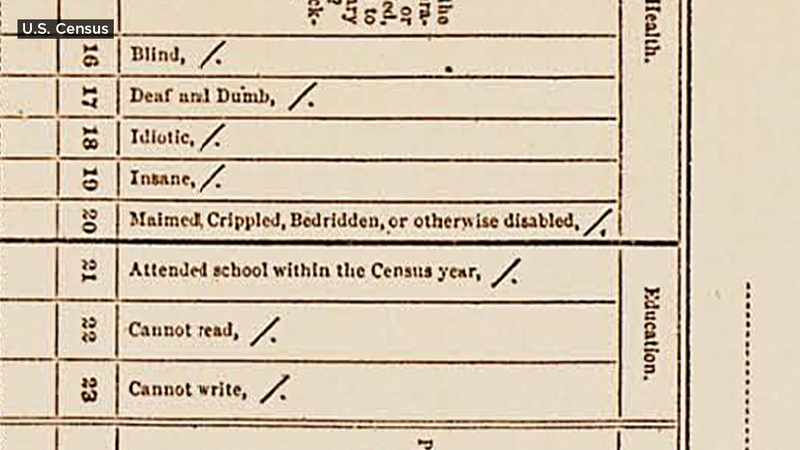 U.S. Census
the
ra-
or
ed,
to
ary
ck-
Health.
16 Blind, /.
17 Deaf and Dumb, /.
18 Idiotic, /.
19 Insane, /.
20 Maimed, Crippled, Bedridden, or otherwise disabled, /.
21 Attended school within the Census year, /.
Education.
22 Cannot read, /.
23 Cannot write, /.